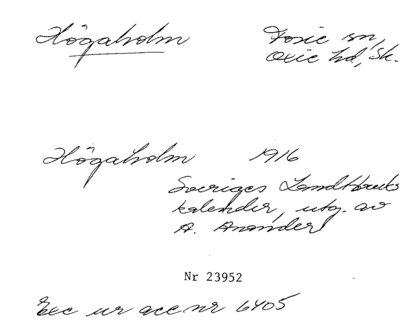 Högaholm
Fosie sn,
Oxie hd, Sk.
Högaholm 1916
Sveriges Landtbruks
kalender, utg. av
A. Anander
Nr 23952
Exc ur acc nr 6405